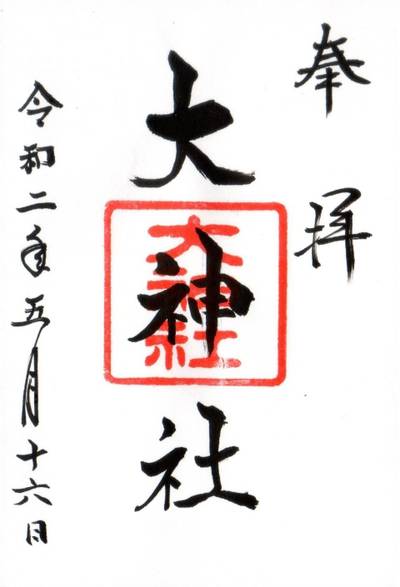 奉拝
大神社
大神社
令和二年五月十六日